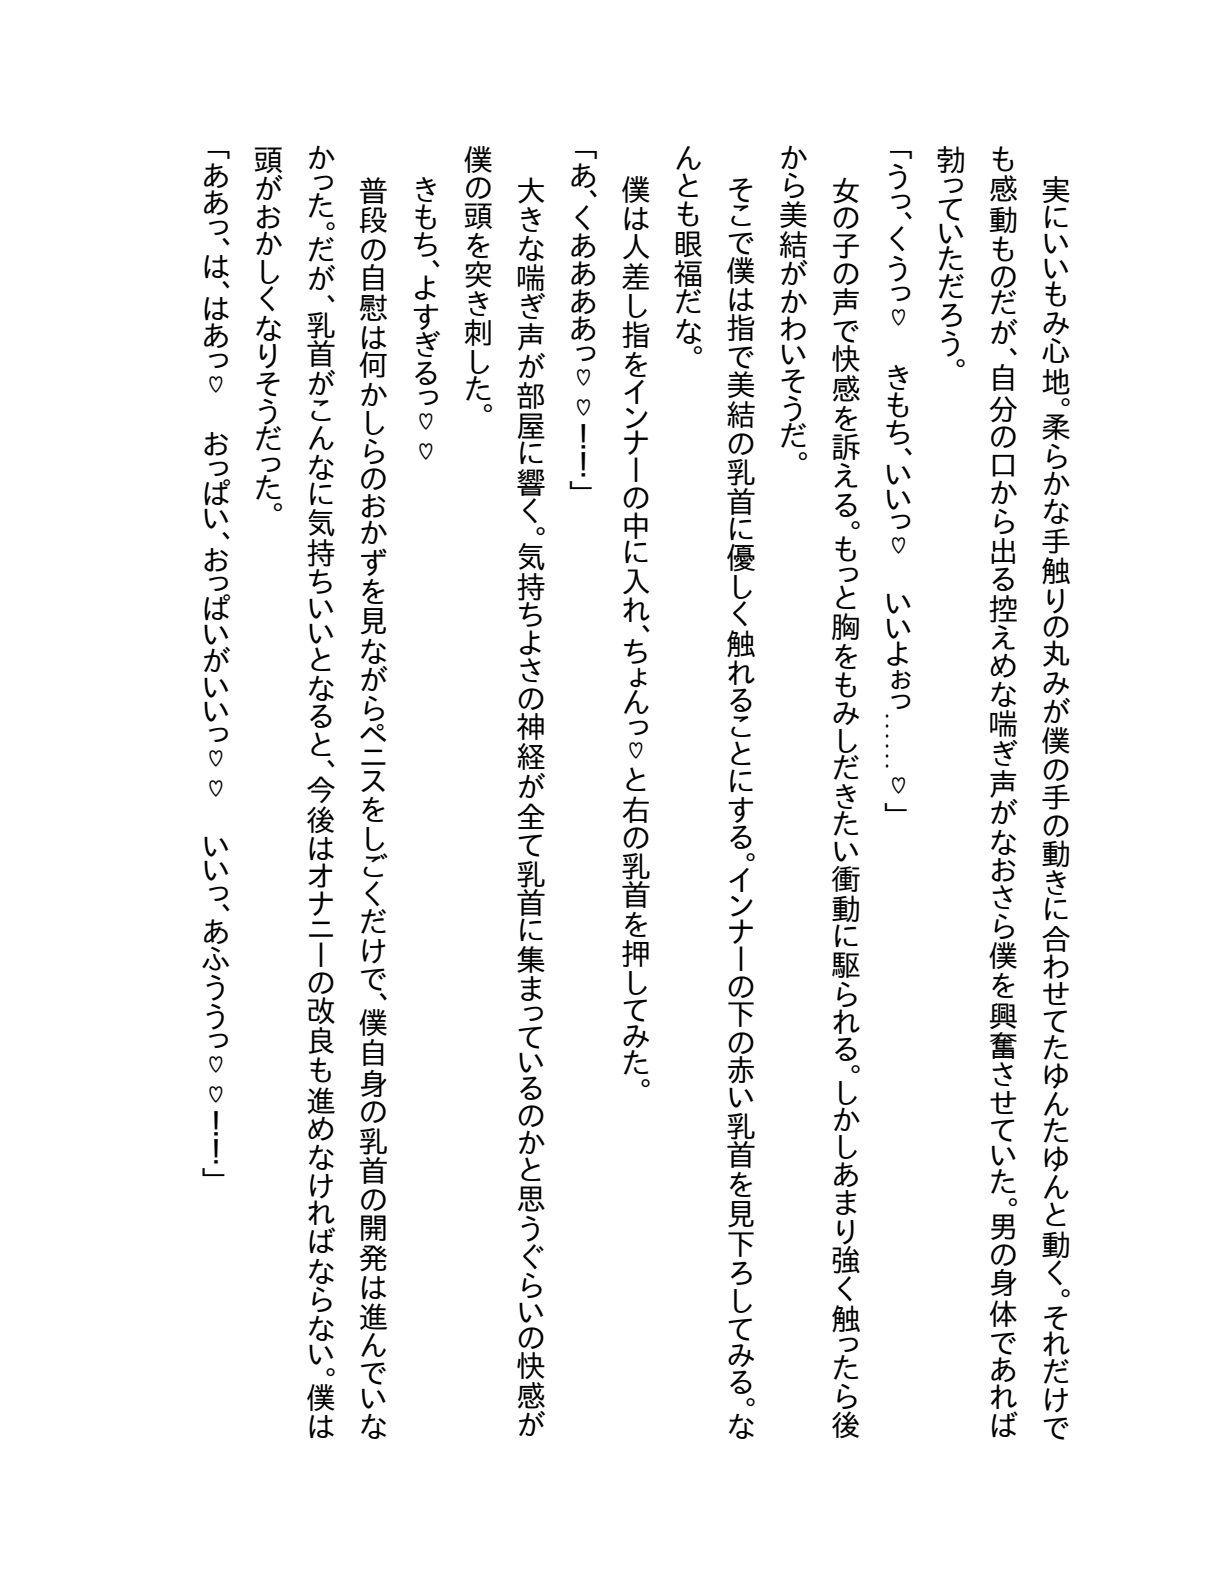 実にいいもみ心地。柔らかな手触りの丸みが僕の手の動きに合わせてたゆんたゆんと動く。それだけで
も感動ものだが、自分の口から出る控えめな喘ぎ声がなおさら僕を興奮させていた。男の身体であれば
勃っていただろう。
「うっ、くうっ♡　きもち、いいっ♡　いいよぉっ……♡」
女の子の声で快感を訴える。もっと胸をもみしだきたい衝動に駆られる。しかしあまり強く触ったら後
から美結がかわいそうだ。
そこで僕は指で美結の乳首に優しく触れることにする。インナーの下の赤い乳首を見下ろしてみる。な
んとも眼福だな。
僕は人差し指をインナーの中に入れ、ちょんっ♡と右の乳首を押してみた。
「あ、くああああっ♡♡！！」
大きな喘ぎ声が部屋に響く。気持ちよさの神経が全て乳首に集まっているのかと思うぐらいの快感が
僕の頭を突き刺した。
きもち、よすぎるっ♡♡
普段の自慰は何かしらのおかずを見ながらペニスをしごくだけで、僕自身の乳首の開発は進んでいな
かった。だが、乳首がこんなに気持ちいいとなると、今後はオナニーの改良も進めなければならない。僕は
頭がおかしくなりそうだった。
「ああっ、は、はあっ♡　おっぱい、おっぱいがいいっ♡♡　いいっ、あふううっ♡♡！！」